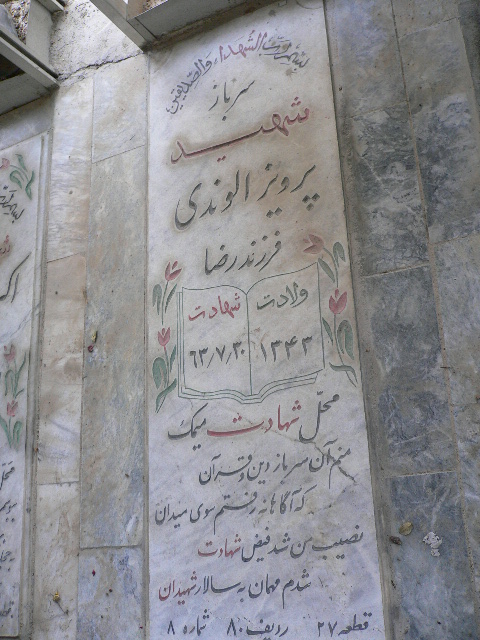 بسم رب الشهداء والصدیقین
سرباز
شهید
پرویز الوندی
فرزند رضا
ولادت
۱۳۴۳
شهادت
۶۳٫۷٫۳۰
محلّ شهادت میمک
منم آن سرباز دین و قرآن
که آگاهانه رفتم سوی میدان
نصیب من شد فیض شهادت
شدم مهمان به سالار شهیدان
قطعه ۲۷ ردیف ۸۰ شماره ۸